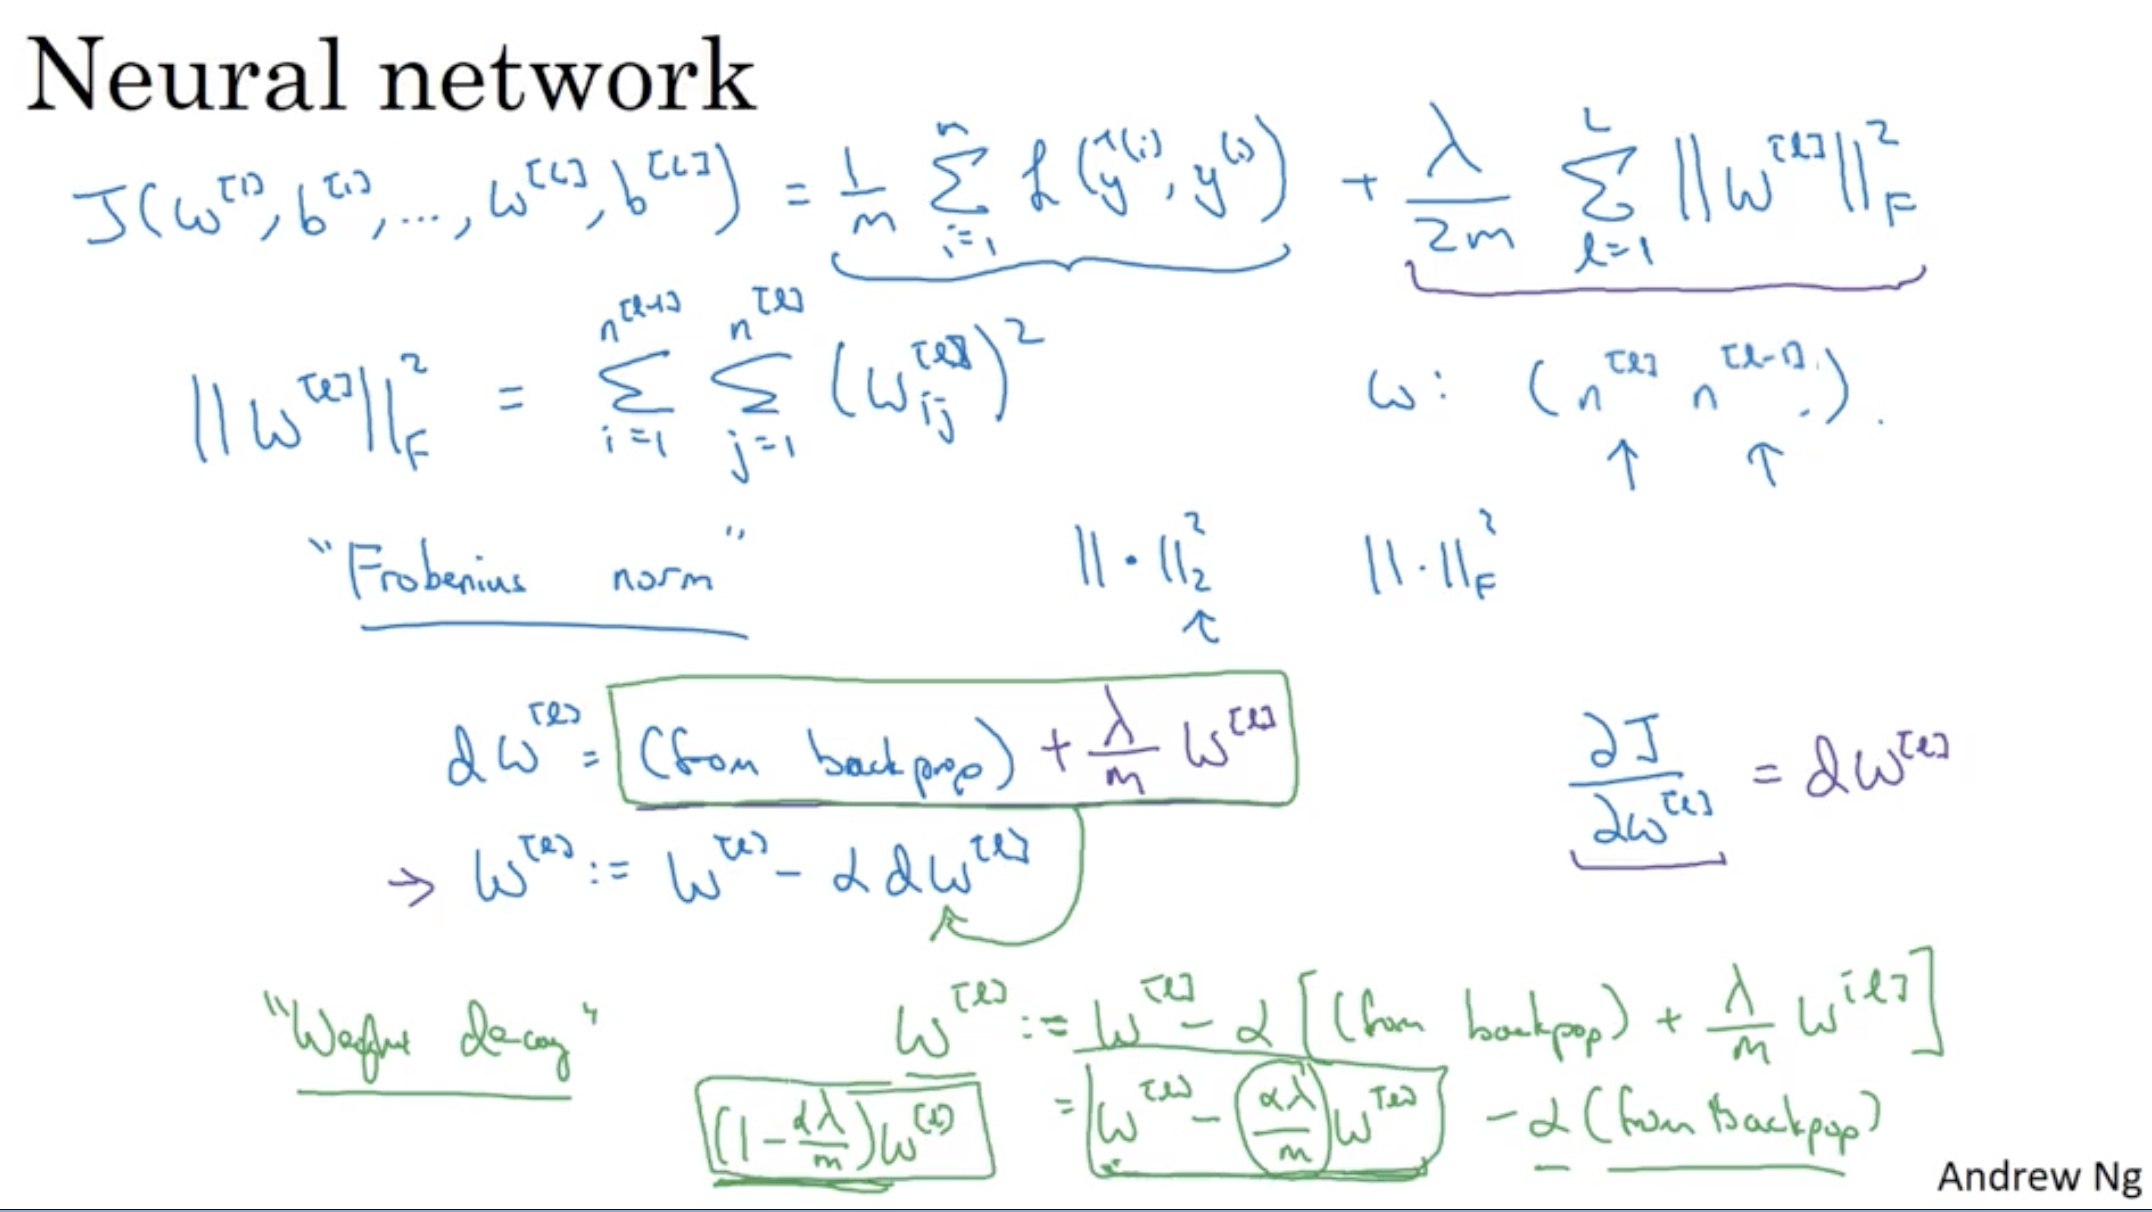 Neural network
J(w^[1], b^[1], ..., w^[L], b^[L]) = 1/m Σ_{i=1}^{m} L(ŷ^(i), y^(i)) + λ/2m Σ_{l=1}^{L} ||w^[l]||_F^2
||w^[l]||_F^2 = Σ_{i=1}^{n^[l-1]} Σ_{j=1}^{n^[l]} (w_ij^[l])^2 w: (n^[l] n^[l-1]).
↑ ↑
"Frobenius norm" ||·||_2^2 ||·||_F^2
↑
dw^[l] = (from backprop) + λ/m w^[l] ∂J/∂w^[l] = dw^[l]
→ w^[l] := w^[l] - α dw^[l]
"Weight decay" w^[l] := w^[l] - α [(from backpop) + λ/m w^[l]]
(1 - αλ/m) w^[l] = w^[l] - αλ/m w^[l] - α (from backpop)
Andrew Ng